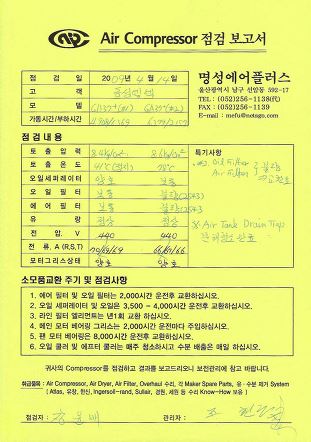 Air Compressor 점검 보고서
점 검 일 2009년 4월 14일
고 객
모 델
가동시간/부하시간
명성에어플러스
울산광역시 남구 신암동 592-17
TEL : (052)256-1138(代)
FAX : (052)256-1139
E-mail : mefu@netsgo.com
점 검 내 용
토 출 압 력
토 출 온 도
오일세퍼레이터 양호 보통
오 일 필 터 보통
에 어 필 터 보통
유 량 정상 정상
전 압, V 440 440
전 류, A (R,S,T) 70/69/69 66/67/66
모터그리스상태 양호 양호
특기사항
Oil Filter
Air Filter
Air Tank Drain Trap
소모품교환 주기 및 점검사항
1. 에어 필터 및 오일 필터는 2,000시간 운전후 교환하십시오.
2. 오일 세퍼레이터 및 오일은 3,500 - 4,000시간 운전후 교환하십시오.
3. 라인 필터 엘리먼트는 년1회 교환 하십시오.
4. 메인 모터 베어링 그리스는 2,000시간 운전마다 주입하십시오.
5. 팬 모터 베어링은 8,000시간 운전후 교환하십시오.
6. 오일 쿨러 및 에프터 쿨러는 매주 청소하시고 수분 배출은 매일 하십시오.
귀사의 Compressor를 점검하고 결과를 보고드리오니 보전관리에 참고 바랍니다.
취급품목 : Air Compressor, Air Dryer, Air Filter, Overhaul 수리, 각 Maker Spare Parts, 유·수분 제거 System
( Atlas, 유창, 한신, Ingersoll-rand, Sullair, 경원, 제원 등 수리 Know-How 보유 )
점검자 :
관리자 :